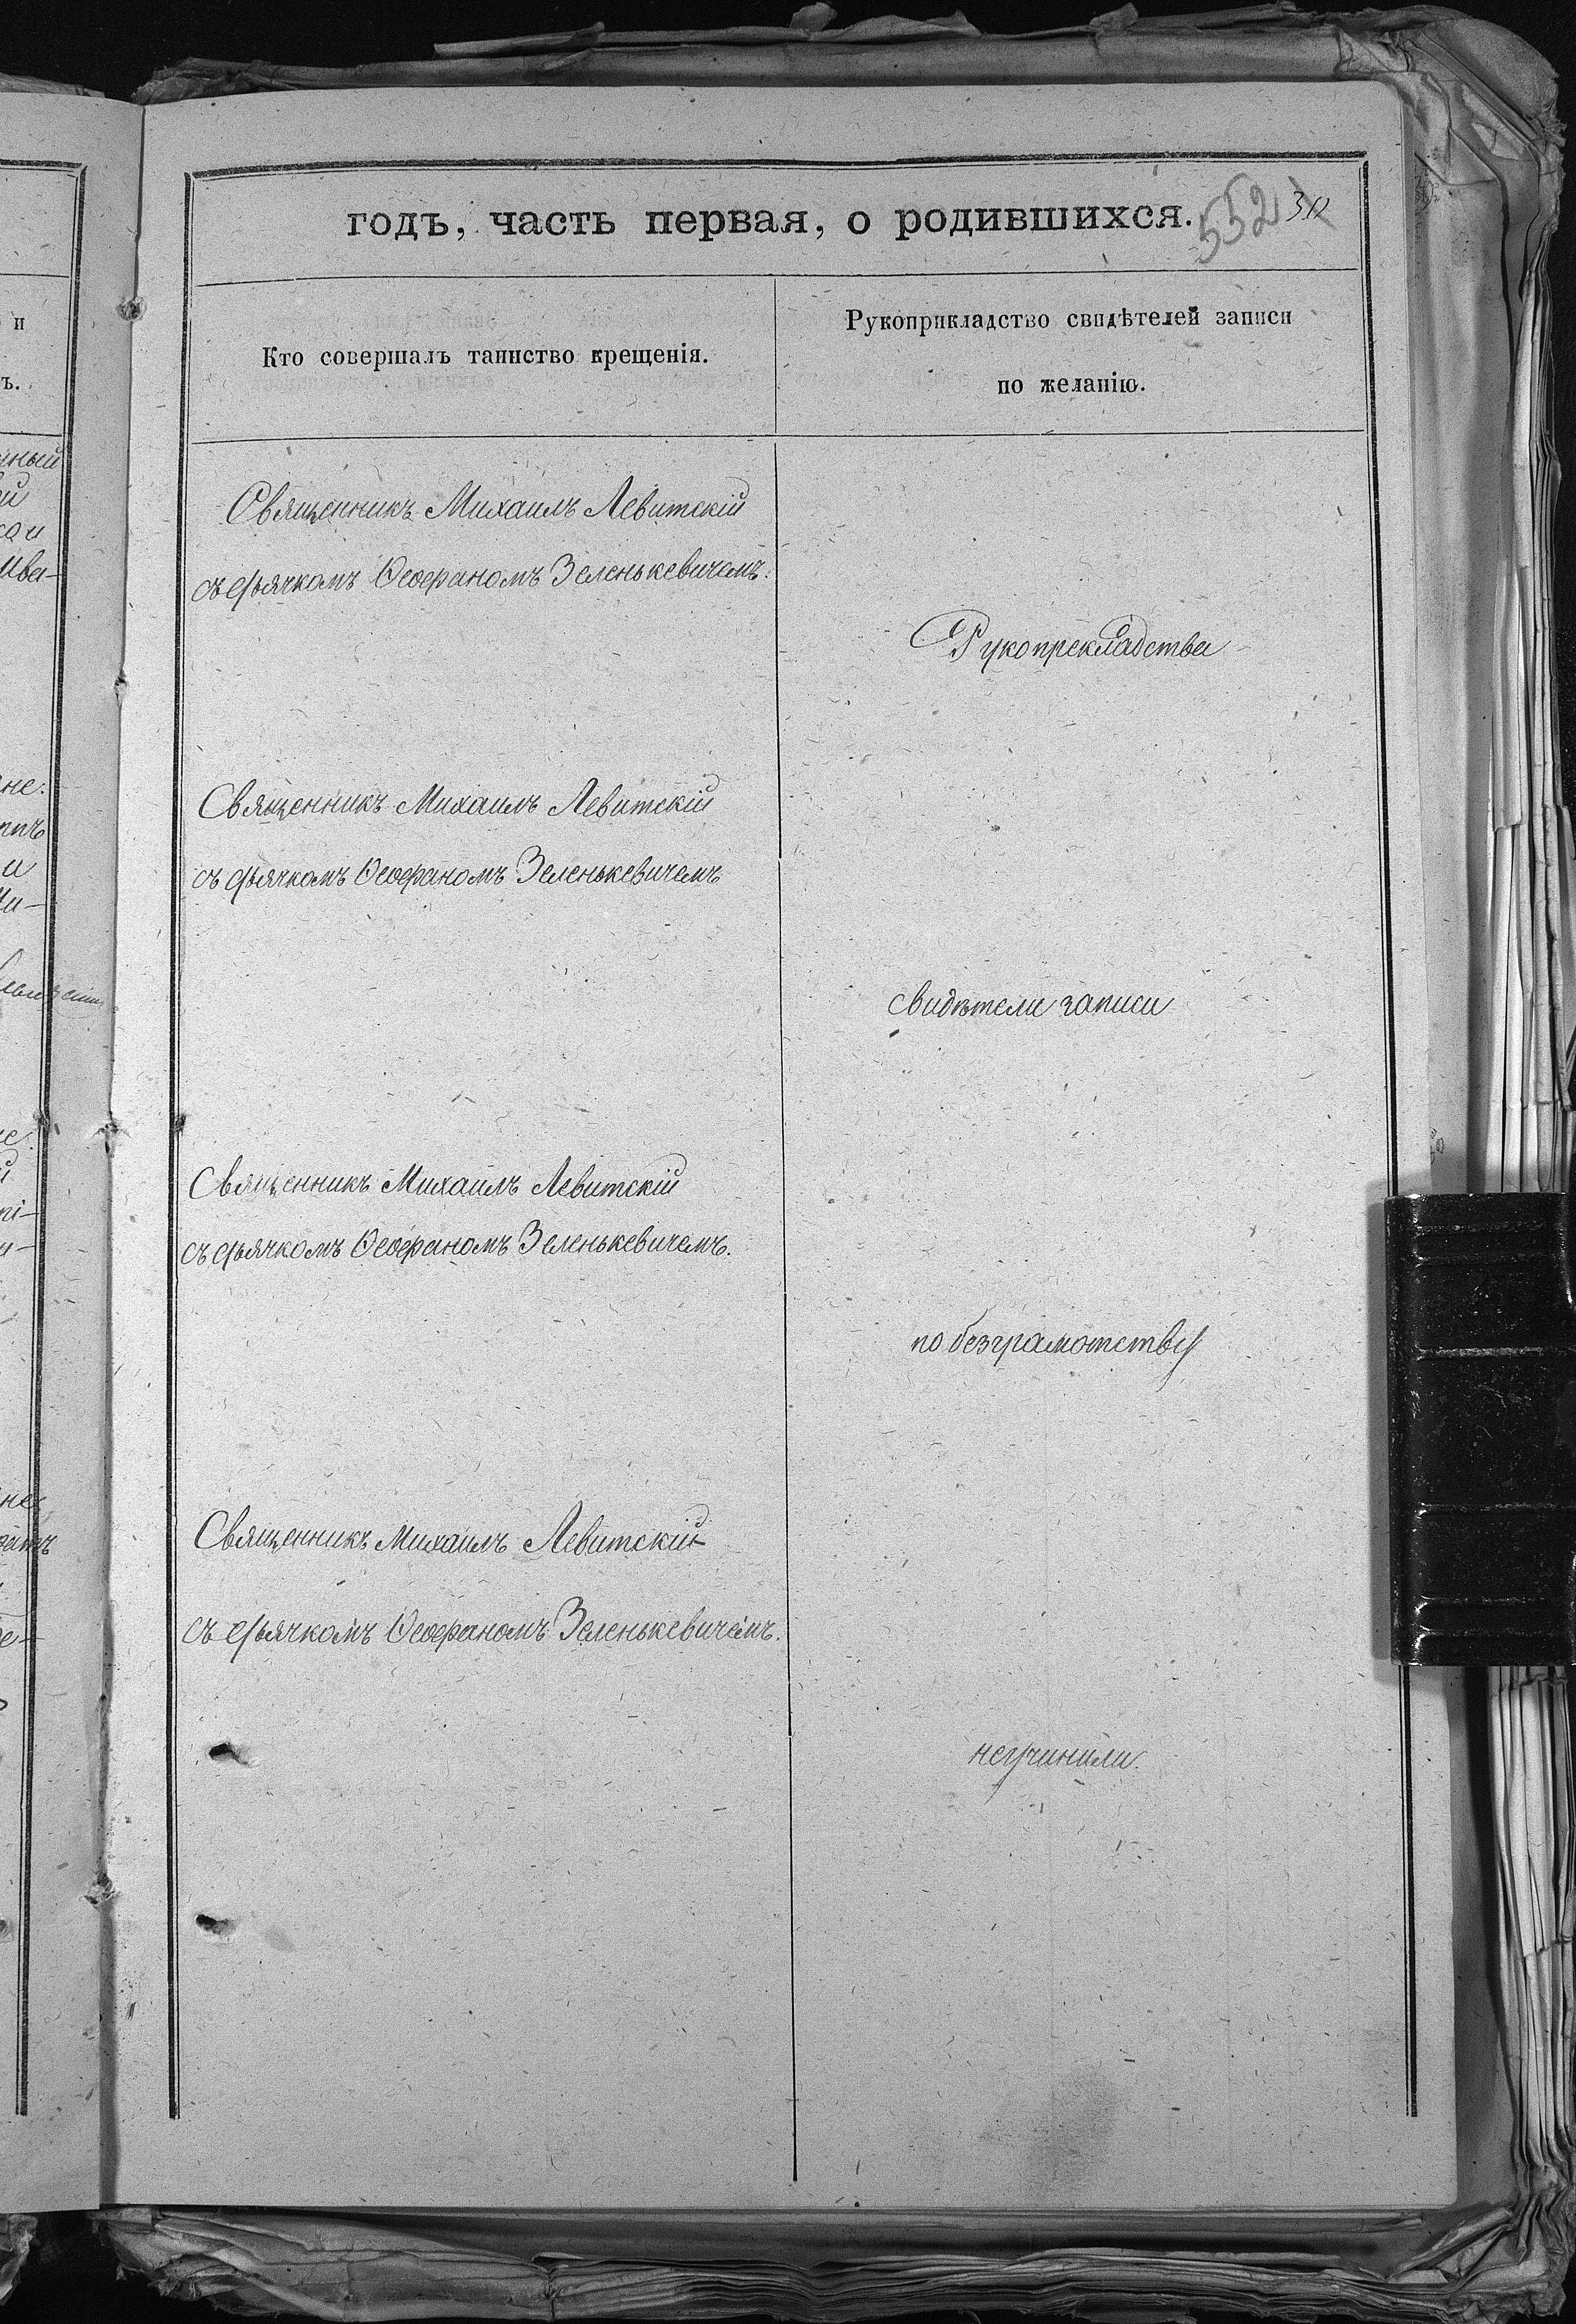 годъ, часть первая, о родившихся.
552
Кто совершалъ таинство крещенія.
Рукоприкладство свидѣтелей записи
по желанію.
Священникъ Михаилъ Левитскій
съ дьячкомъ Ѳеофаномъ Зеленькевичемъ.
Рукопрекладства
Священникъ Михаилъ Левитскій
съ дьячкомъ Ѳеофаномъ Зеленькевичемъ
свидѣтели записи
Священникъ Михаилъ Левитскій
съ дьячкомъ Ѳеофаномъ Зеленькевичемъ.
по безграмотству
Священникъ Михаилъ Левитскій
съ дьячкомъ Ѳеофаномъ Зеленькевичемъ.
неучинили.